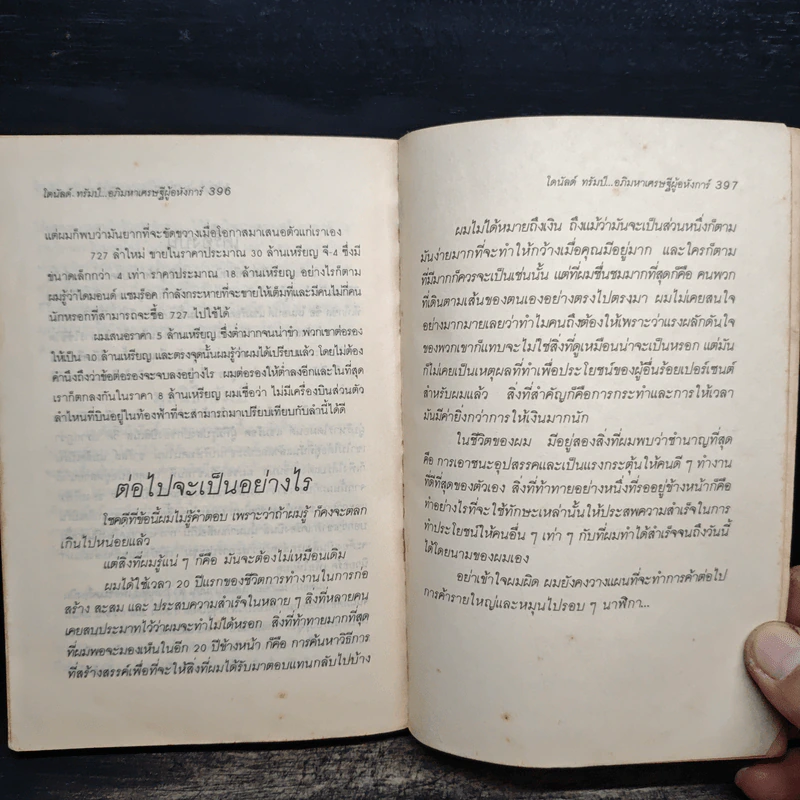 โดนัลด์ ทรัมป์...อภิมหาเศรษฐีผู้อหังการ์ 396
แต่ผมก็พบว่ามันยากที่จะขัดขวางเมื่อโอกาสมาเสนอตัวแก่เราเอง
727 ลำใหม่ ขายในราคาประมาณ 30 ล้านเหรียญ จี-4 ซึ่งมี
ขนาดเล็กกว่า 4 เท่า ราคาประมาณ 18 ล้านเหรียญ อย่างไรก็ตาม
ผมรู้ว่าไดมอนด์ แชมร็อค กำลังกระหายที่จะขายให้เต็มที่และมีคนไม่กี่คน
นักหรอกที่สามารถจะซื้อ 727 ไปใช้ได้
ผมเสนอราคา 5 ล้านเหรียญ ซึ่งต่ำมากจนน่าขำ พวกเขาต่อรอง
ให้เป็น 10 ล้านเหรียญ และตรงจุดนั้นผมรู้ว่าผมได้เปรียบแล้ว โดยไม่ต้อง
คำนึงถึงว่าข้อต่อรองจะจบลงอย่างไร ผมต่อรองให้ต่ำลงอีกและในที่สุด
เราก็ตกลงกันในราคา 8 ล้านเหรียญ ผมเชื่อว่า ไม่มีเครื่องบินส่วนตัว
ลำไหนที่บินอยู่ในท้องฟ้าที่จะสามารถมาเปรียบเทียบกับลำนี้ได้ดี
ต่อไปจะเป็นอย่างไร
โชคดีที่ข้อนี้ผมไม่รู้คำตอบ เพราะว่าถ้าผมรู้ ก็คงจะตลก
เกินไปหน่อยแล้ว
แต่สิ่งที่ผมรู้แน่ ๆ ก็คือ มันจะต้องไม่เหมือนเดิม
ผมได้ใช้เวลา 20 ปีแรกของชีวิตการทำงานในการก่อ
สร้าง สะสม และ ประสบความสำเร็จในหลาย ๆ สิ่งที่หลายคน
เคยสบประมาทไว้ว่าผมจะทำไม่ได้หรอก สิ่งที่ท้าทายมากที่สุด
ที่ผมพอจะมองเห็นในอีก 20 ปีข้างหน้า ก็คือ การค้นหาวิธีการ
ที่สร้างสรรค์เพื่อที่จะให้สิ่งที่ผมได้รับมาตอบแทนกลับไปบ้าง
โดนัลด์ ทรัมป์...อภิมหาเศรษฐีผู้อหังการ์ 397
ผมไม่ได้หมายถึงเงิน ถึงแม้ว่ามันจะเป็นส่วนหนึ่งก็ตาม
มันง่ายมากที่จะทำให้กว้างเมื่อคุณมีอยู่มาก และใครก็ตาม
ที่มีมากก็ควรจะเป็นเช่นนั้น แต่ที่ผมชื่นชมมากที่สุดก็คือ คนพวก
ที่เดินตามเส้นของตนเองอย่างตรงไปตรงมา ผมไม่เคยสนใจ
อย่างมากมายเลยว่าทำไมคนถึงต้องให้เพราะว่าแรงผลักดันใจ
ของพวกเขาก็แทบจะไม่ใช่สิ่งที่ดูเหมือนน่าจะเป็นหรอก แต่มัน
ก็ไม่เคยเป็นเหตุผลที่ทำเพื่อประโยชน์ของผู้อื่นร้อยเปอร์เซนต์
สำหรับผมแล้ว สิ่งที่สำคัญก็คือการกระทำและการให้เวลา
มันมีค่ายิ่งกว่าการให้เงินมากนัก
ในชีวิตของผม มีอยู่สองสิ่งที่ผมพบว่าชำนาญที่สุด
คือ การเอาชนะอุปสรรคและเป็นแรงกระตุ้นให้คนดี ๆ ทำงาน
ที่ดีที่สุดของตัวเอง สิ่งที่ท้าทายอย่างหนึ่งที่รออยู่ข้างหน้าก็คือ
ทำอย่างไรที่จะใช้ทักษะเหล่านั้นให้ประสพความสำเร็จในการ
ทำประโยชน์ให้คนอื่น ๆ เท่า ๆ กับที่ผมทำได้สำเร็จจนถึงวันนี้
ได้โดยนามของผมเอง
อย่าเข้าใจผมผิด ผมยังคงวางแผนที่จะทำการค้าต่อไป
การค้ารายใหญ่และหมุนไปรอบ ๆ นาฬิกา...